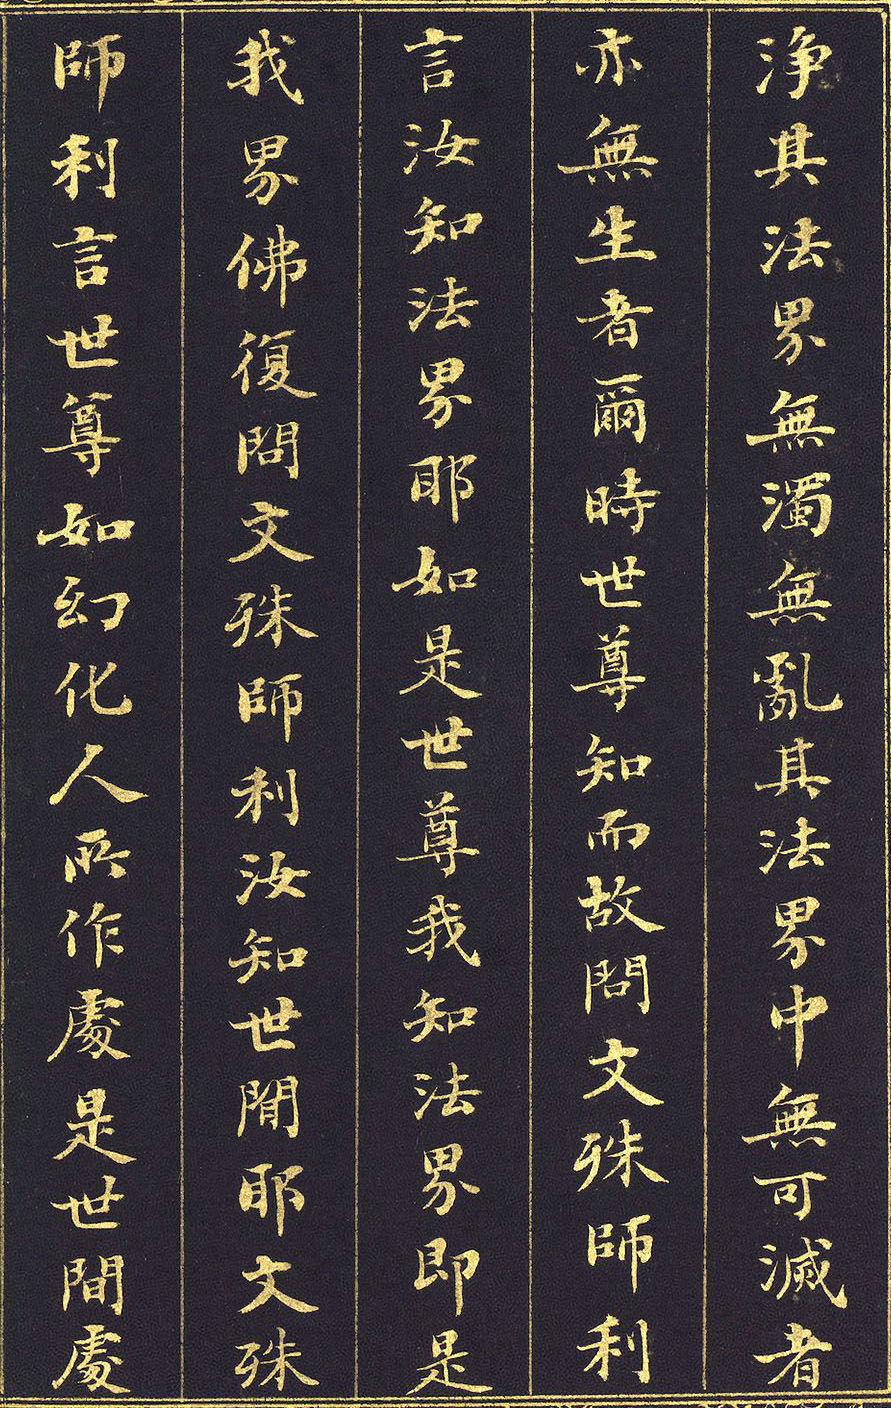 淨其法界無濁無亂其法界中無可滅者
亦無生者爾時世尊知而故問文殊師利
言汝知法界耶如是世尊我知法界即是
我界佛復問文殊師利汝知世間耶文殊
師利言世尊如幻化人所作處是世間處